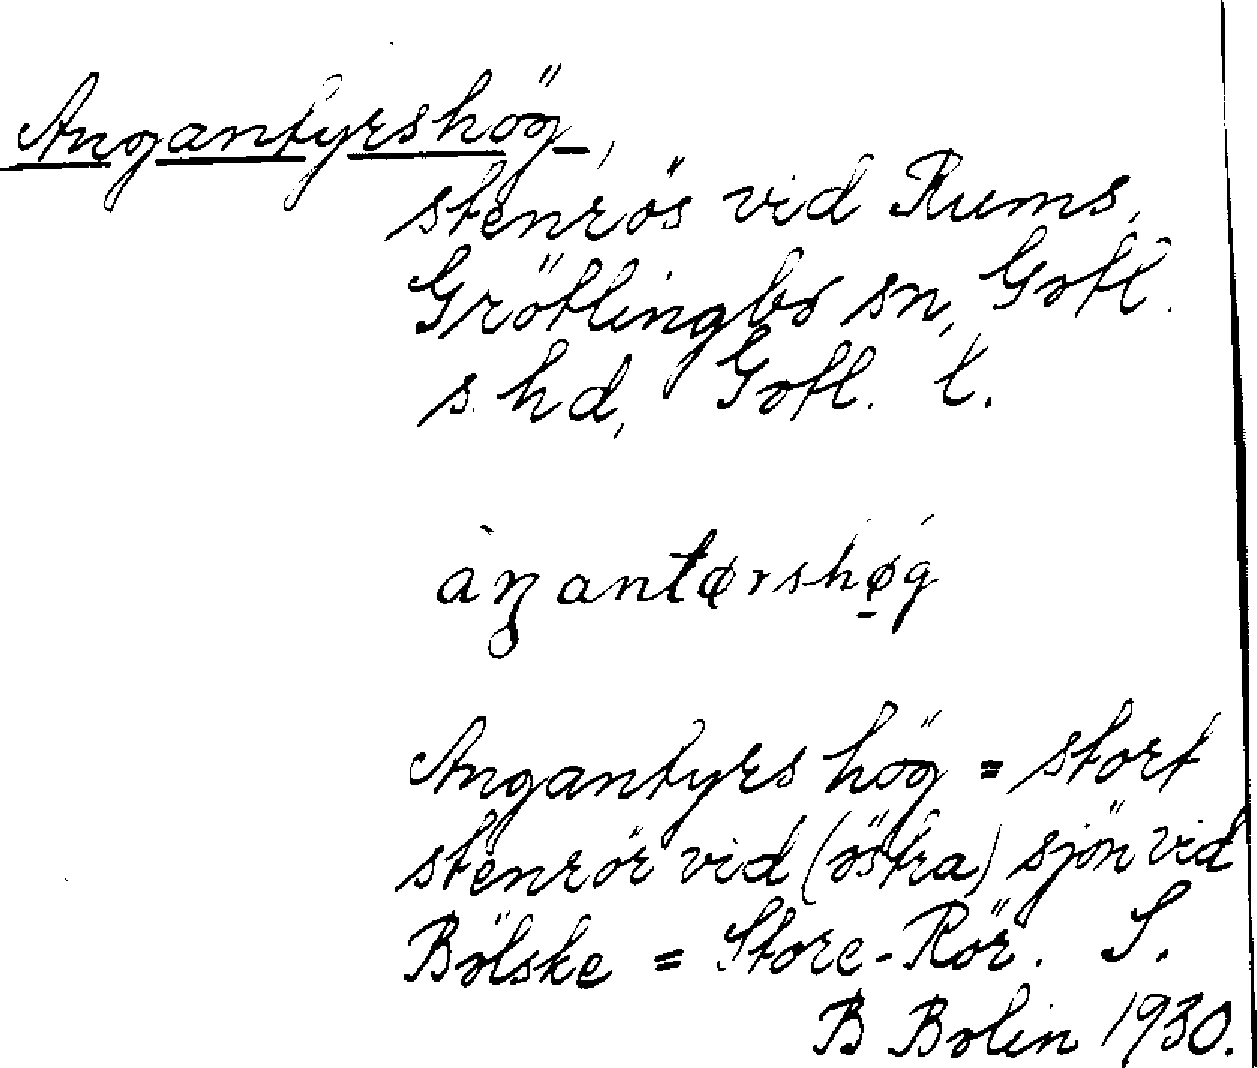 Angantyrshög,
stenrös vid Rums,
Grötlingbo sn, Gotl.
s. hd, Gotl. l.
àŋantørshǿ̱g
Angantyrs hög = stort
stenrör vid (östra) sjön vid
Bölske = Store-Rör. S.
B Bolin 1930.